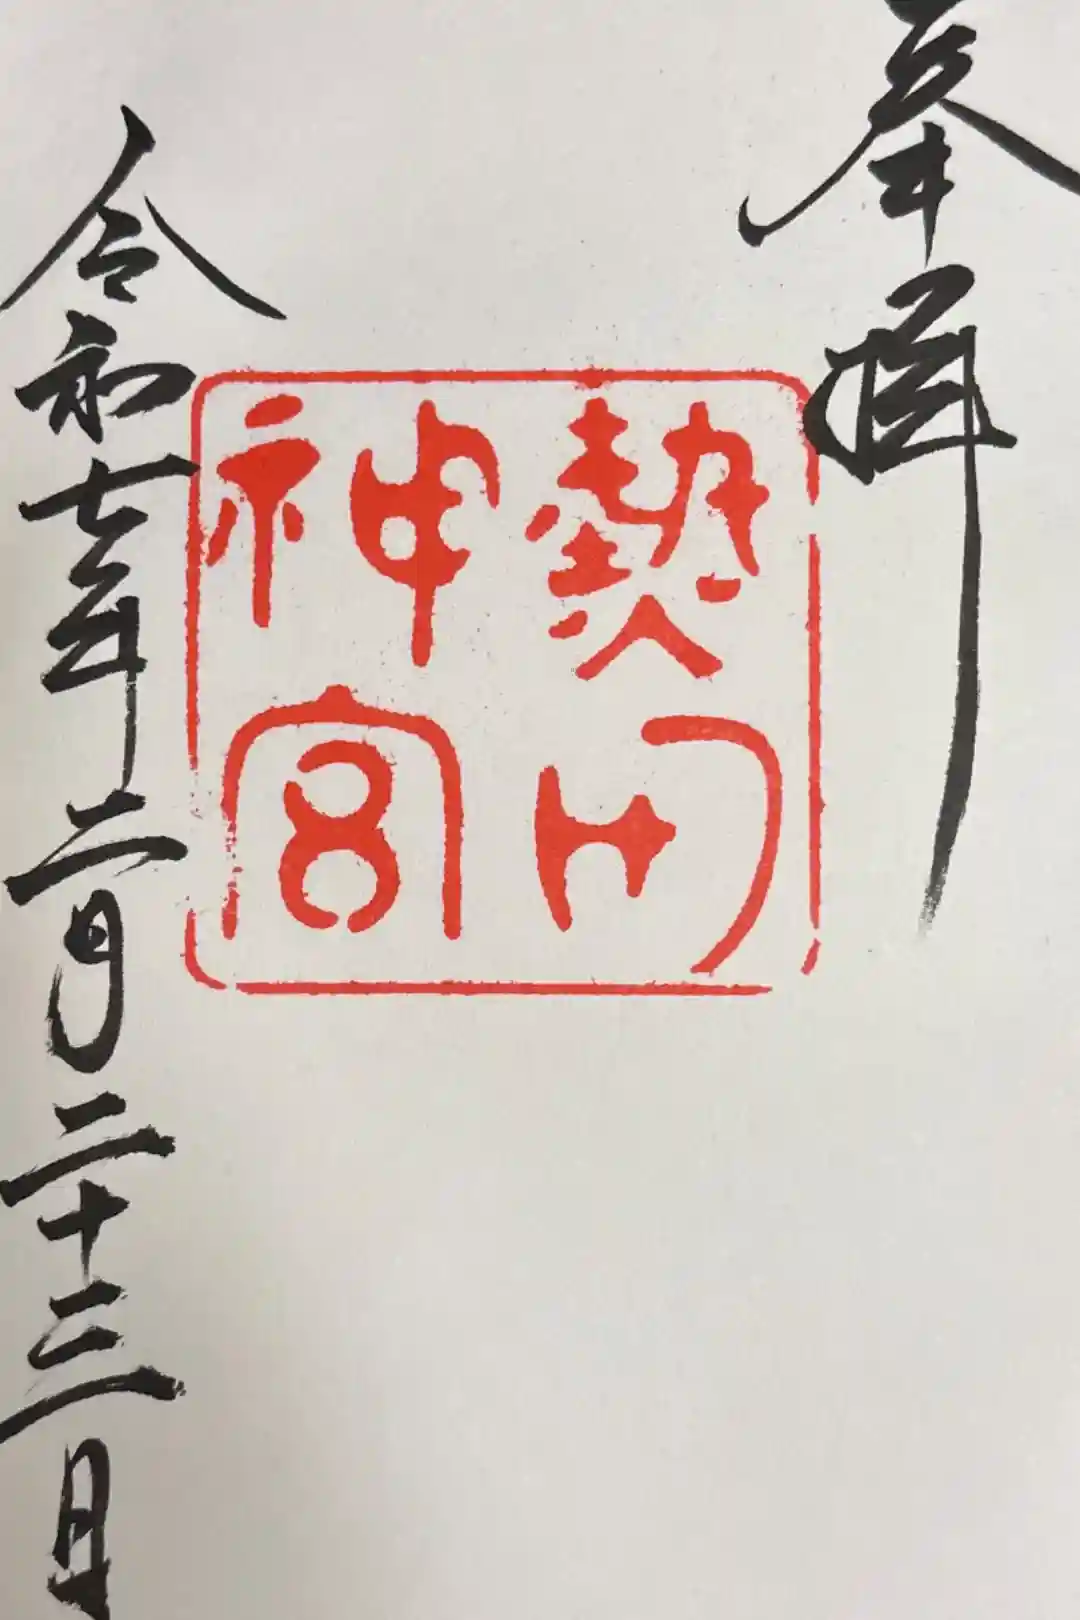 奉拝
熱田
神宮
令和七年二月二十三日